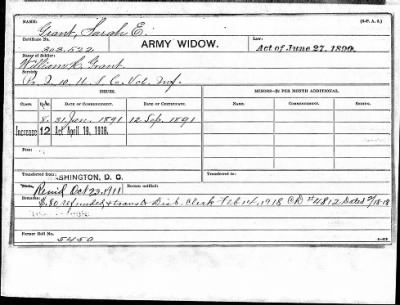 Grant, Sarah E. (3-P. A. S.)
Certificate No. 303.522 ARMY WIDOW. Law: Act of June 27, 1890.
Name of Soldier:
William R. Grant
Service:
Co. I. 10. U. S. C. Vol. Inf.
ISSUE. MINORS—$2 PER MONTH ADDITIONAL.
Class. Rate. Date of Commencement. Date of Certificate. Name. Commencement.
8. 31 Jan. 1891 12 Sep. 1891
Increase 12 Act April 19, 1908.
From
Transferred from WASHINGTON, D. C. Transferred from
Remd Oct 23, 1911
Remarks: refunded & trans to Disb. Clerk Feb 14, 1918 CD #4812 Dated 2/18-18
Former Roll No.
5450